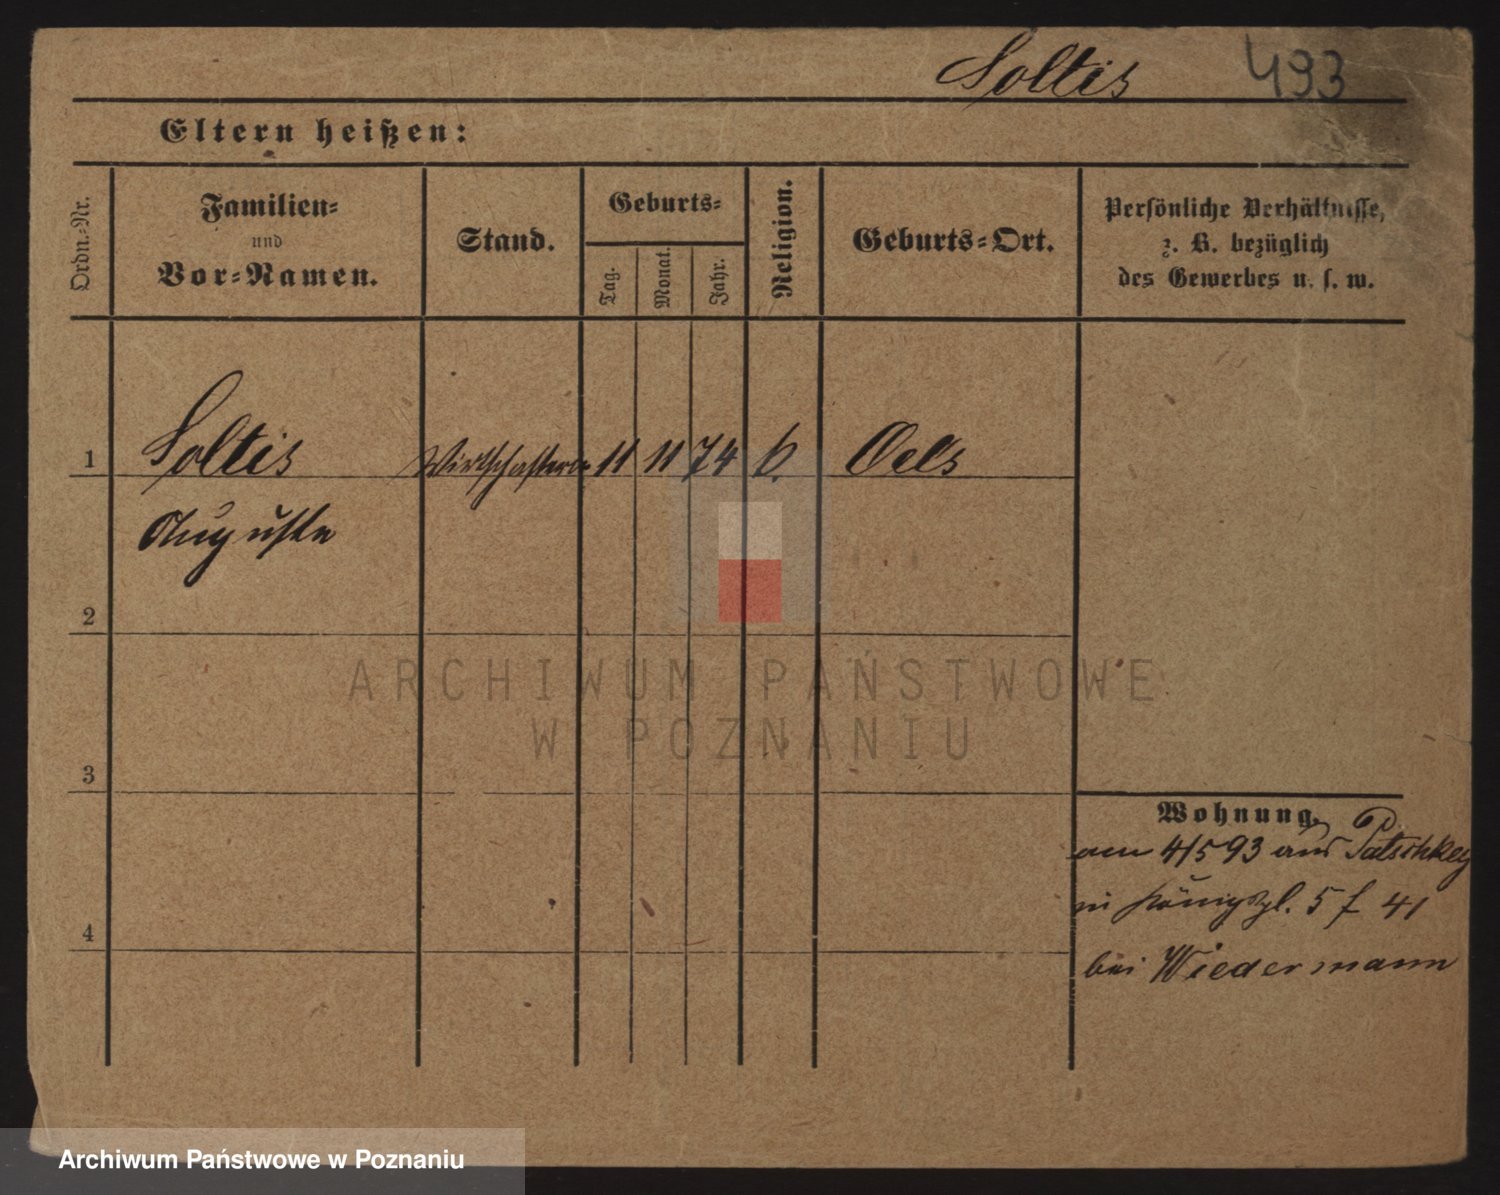 Soltis 493
Eltern heißen:
Ordn.-Nr.
Familien-
und
Vor-Namen.
Stand.
Geburts-
Tag.
Monat.
Jahr.
Religion.
Geburts-Ort.
Persönliche Verhältnisse,
z. B. bezüglich
des Gewerbes u. s. w.
1 Soltis Wirtschafterin 11 11 74 Oels
Auguste
2
3
4
Wohnung.
am 4/5 93 aus Patschkey
in Königspl. 5 f 41
bei Wiedermann
ARCHIWUM PAŃSTWOWE
W POZNANIU
Archiwum Państwowe w Poznaniu